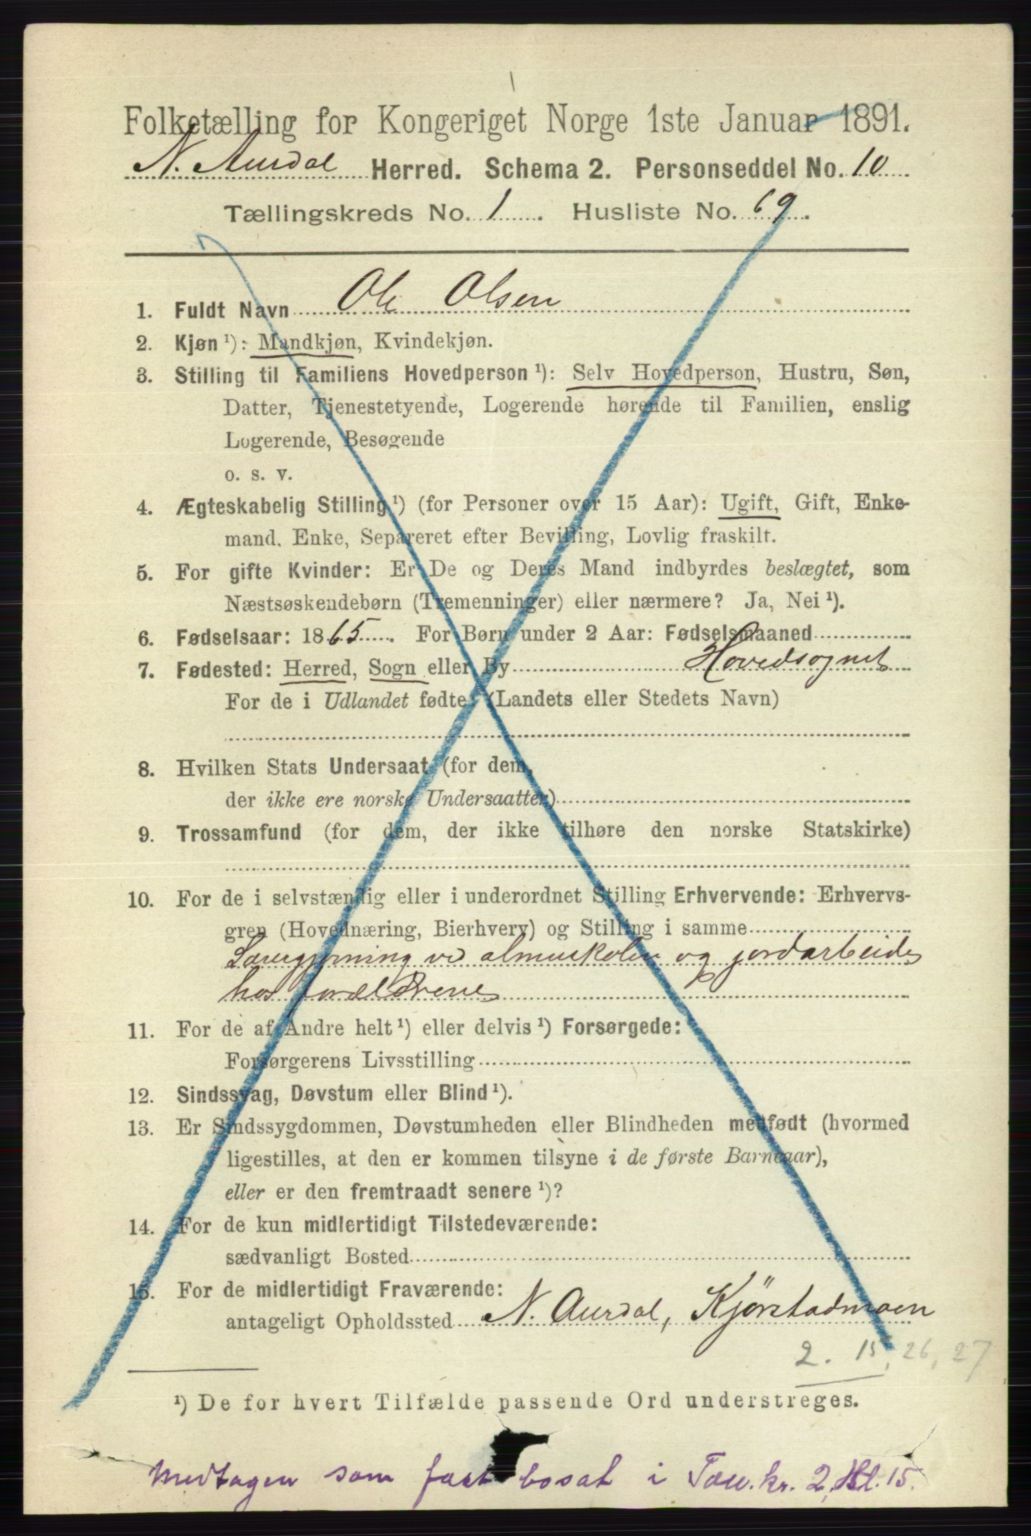 Folketælling for Kongeriget Norge 1ste Januar 1891.
N. Aurdal Herred. Schema 2. Personseddel No. 10
Tællingskreds No. 1. Husliste No. 69.
1. Fuldt Navn Ole Olsen
2. Kjøn ¹): Mandkjøn, Kvindekjøn.
3. Stilling til Familiens Hovedperson ¹): Selv Hovedperson, Hustru, Søn,
Datter, Tjenestetyende, Logerende hørende til Familien, enslig
Logerende, Besøgende
o. s. v.
4. Ægteskabelig Stilling ¹) (for Personer over 15 Aar): Ugift, Gift, Enke-
mand, Enke, Separeret efter Bevilling, Lovlig fraskilt.
5. For gifte Kvinder: Er De og Deres Mand indbyrdes beslægtet, som
Næstsøskendebørn (Tremenninger) eller nærmere? Ja, Nei ¹).
6. Fødselsaar: 1865. For Børn under 2 Aar: Fødselsmaaned
7. Fødested: Herred, Sogn eller By Hovedsognet
For de i Udlandet fødte: (Landets eller Stedets Navn)
8. Hvilken Stats Undersaat (for dem,
der ikke ere norske Undersaatter)
9. Trossamfund (for dem, der ikke tilhøre den norske Statskirke)
10. For de i selvstændig eller i underordnet Stilling Erhvervende: Erhvervs-
gren (Hovednæring, Bierhverv) og Stilling i samme
ved almueskolen og jordarbeide
hos foreldrene
11. For de af Andre helt ¹) eller delvis ¹) Forsørgede:
Forsørgerens Livsstilling
12. Sindssvag, Døvstum eller Blind ¹).
13. Er Sindssygdommen, Døvstumheden eller Blindheden medfødt (hvormed
ligestilles, at den er kommen tilsyne i de første Barneaar),
eller er den fremtraadt senere ¹)?
14. For de kun midlertidigt Tilstedeværende:
sædvanligt Bosted
15. For de midlertidigt Fraværende:
antageligt Opholdssted N. Aurdal, Kjørstadmoen
2. 15, 26, 27
¹) De for hvert Tilfælde passende Ord understreges.
Medtagen som fast bosat i Tæll.kr. 2, Hl. 15.